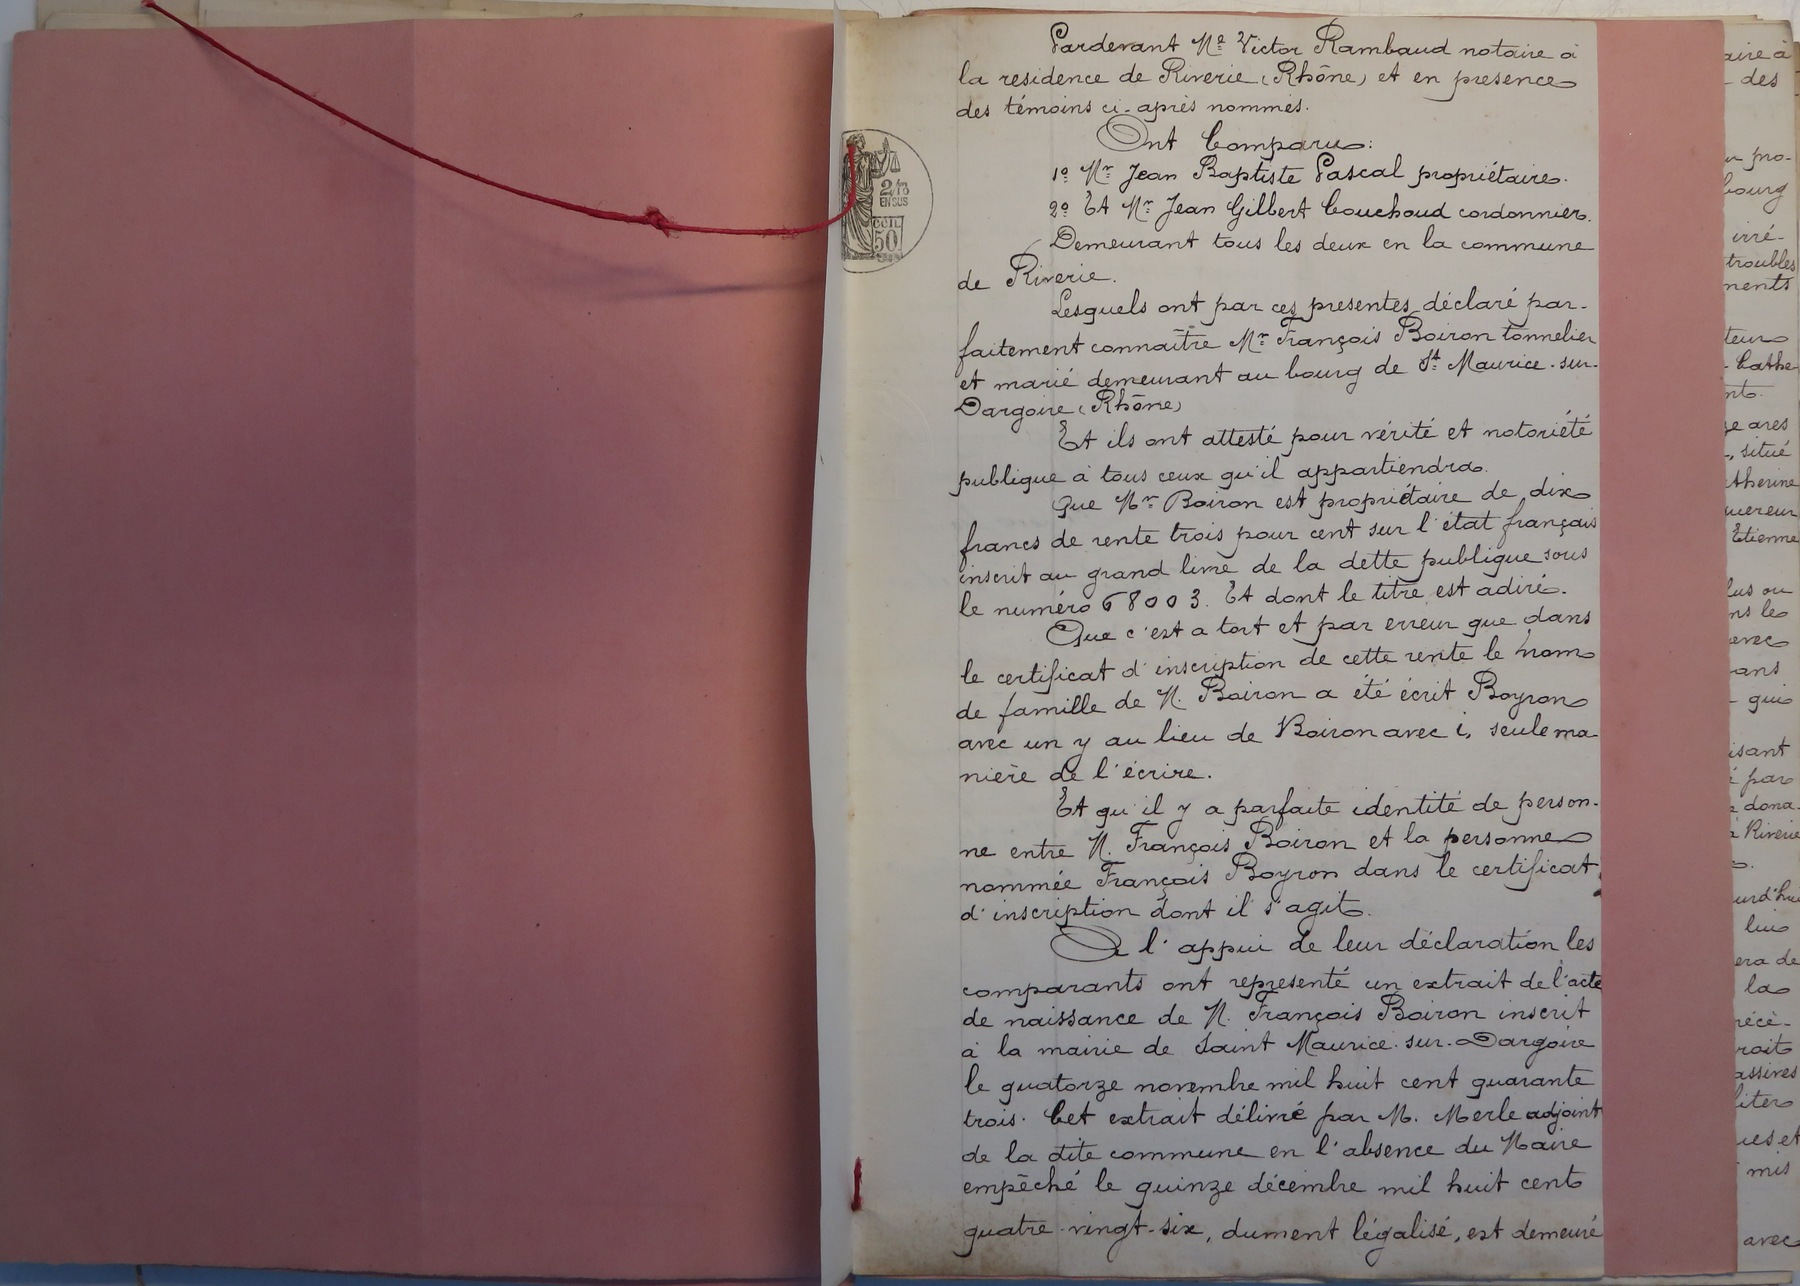 2/10
EN SUS
50
Pardevant Me Victor Rambaud notaire à
la residence de Riverie (Rhône) et en presence
des témoins ci-après nommés.
Ont Comparu:
1o Mr Jean Baptiste Pascal propriétaire.
2o Et Mr Jean Gilbert Couchoud cordonnier.
Demeurant tous les deux en la commune
de Riverie.
Lesquels ont par ces presentes déclaré par-
faitement connaître Mr François Boiron tonnelier
et marié demeurant au bourg de St Maurice-sur-
Dargoire (Rhône)
Et ils ont attesté pour vérité et notoriété
publique à tous ceux qu'il appartiendra.
Que Mr Boiron est propriétaire de dix
francs de rente trois pour cent sur l'état français
inscrit au grand livre de la dette publique sous
le numéro 68003. Et dont le titre est adiré.
Que c'est a tort et par erreur que dans
le certificat d'inscription de cette rente le nom
de famille de M. Boiron a été écrit Boyron
avec un y au lieu de Boiron avec i, seule ma-
nière de l'écrire.
Et qu'il y a parfaite identité de person-
ne entre M. François Boiron et la personne
nommée François Boyron dans le certificat
d'inscription dont il s'agit.
A l'appui de leur déclaration les
comparants ont representé un extrait de l'acte
de naissance de M. François Boiron inscrit
à la mairie de Saint Maurice-sur-Dargoire
le quatorze novembre mil huit cent quarante
trois. Cet extrait délivré par M. Merle adjoint
de la dite commune en l'absence du Maire
empêché le quinze décembre mil huit cent
quatre-vingt-six, dument légalisé, est demeuré
aire à
des
pro-
bourg
irré-
troubles
ments
teur
Cathe
nt.
ze ares
, situé
atherine
quereur
Etienne
lus ou
ns le
avec
ans
qui
isant
par
dona-
Riverie
urd'hui
lui
era de
la
récè-
roits
assives
liter
ues et
mis
avec